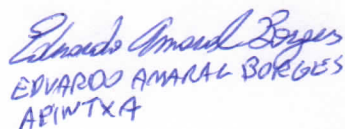 Eduardo Amaral Borges
EDUARDO AMARAL BORGES
APINTXA